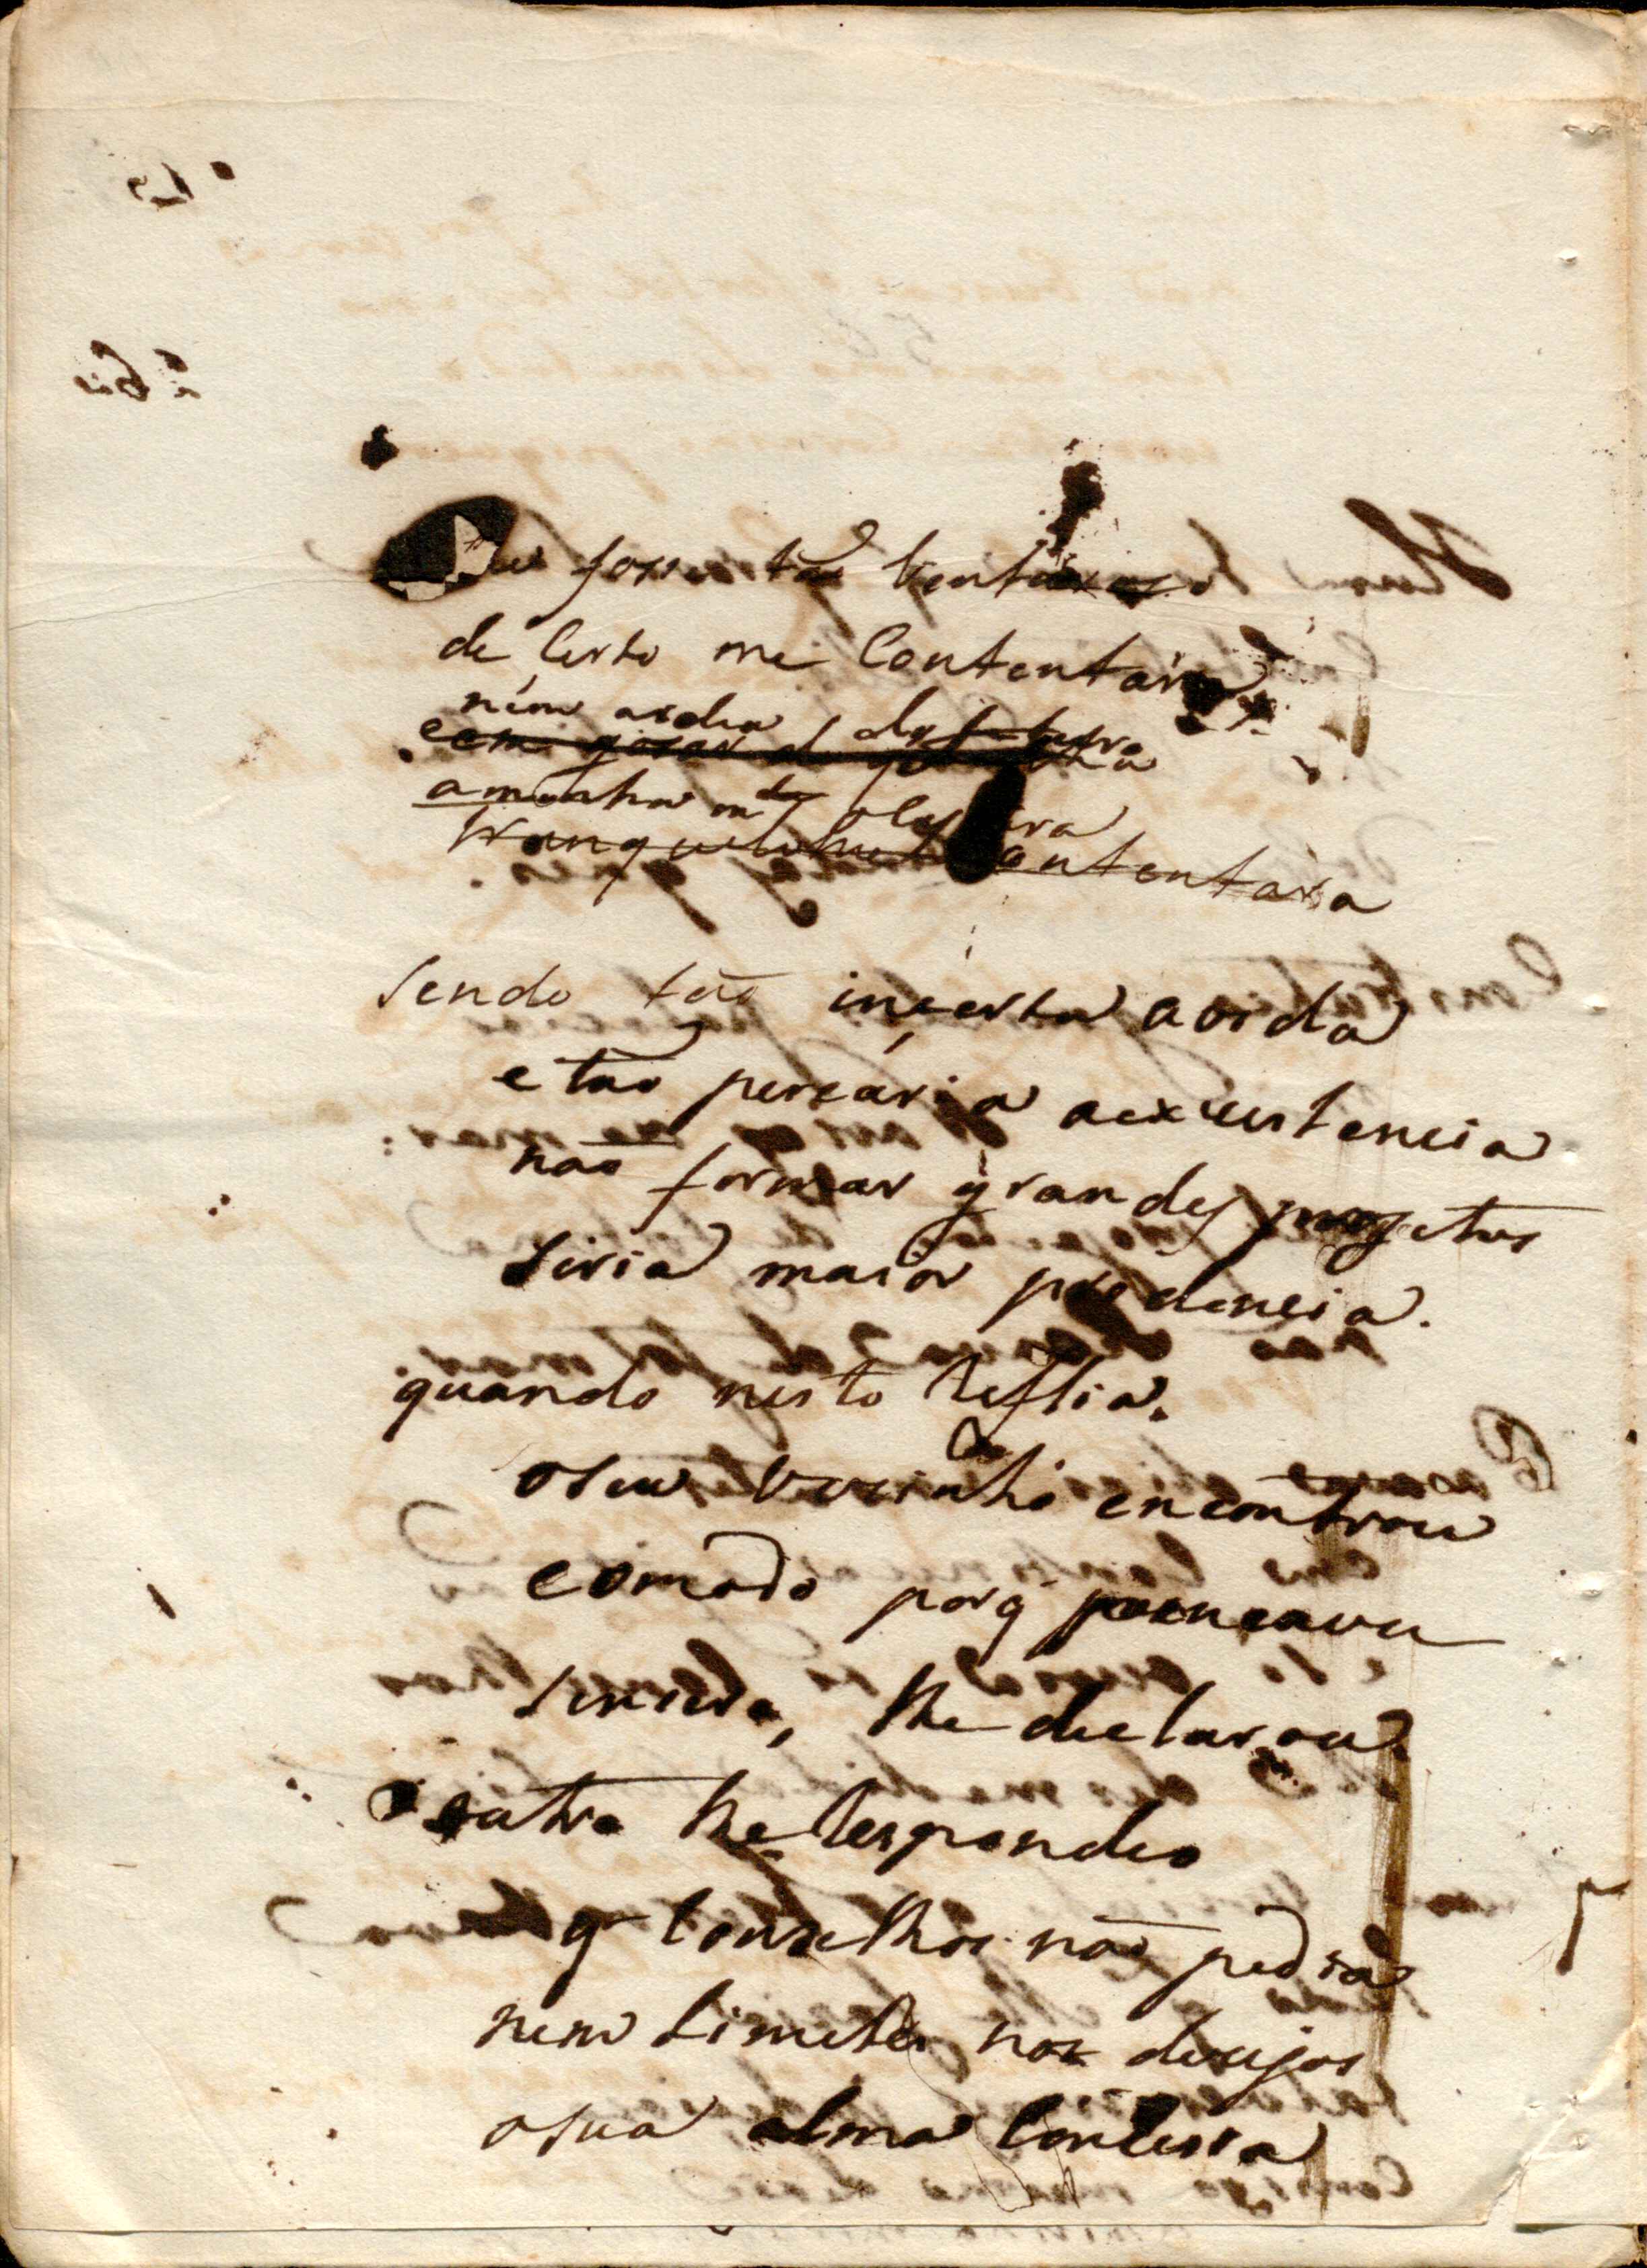 fosse tão Venturoso
de Certo me Contentára
nem ardia
com gosar de
a minha
tranquilo contentára
Sendo tão incerta a vida
e tão percaria a existencia
não formar grandes projetos
Siria maior prudencia.
quando nisto Reflia.
o seu Vezinho encontrou
e o modo porq̃ pencava
Sincero, lhe declarou.
outro lhe Respondeo
q̃ Conselhos não pedia
nem Limites nos desejos
a sua alma Conhesia